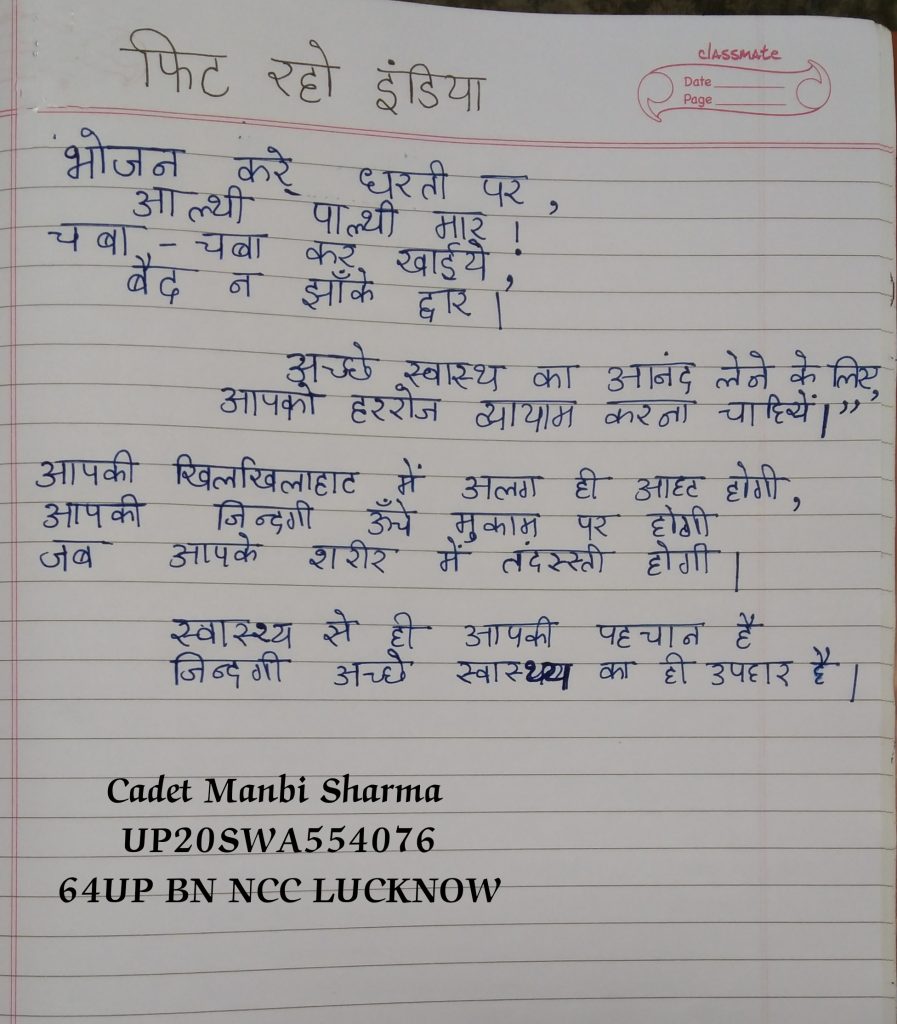 फिट रहो इंडिया
classmate
Date
Page
भोजन करे धरती पर,
आल्थी पाल्थी मार !
चबा - चबा कर खाईये,
बैद न झाँके द्वार |
अच्छे स्वास्थ का आनंद लेने के लिए,
आपको हररोज व्यायाम करना चाहियें|”
आपकी खिलखिलाहाट में अलग ही आहट होगी,
आपकी जिन्दगी ऊँचे मुकाम पर होगी
जब आपके शरीर में तंदरूस्ती होगी |
स्वास्थ्य से ही आपकी पहचान है
जिन्दगी अच्छे स्वास्थ्य का ही उपहार है |
Cadet Manbi Sharma
UP20SWA554076
64UP BN NCC LUCKNOW